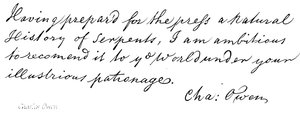 Having prepard for the press a Natural
History of Serpents, I am ambitious
to recomend it to ye World under your
illustrious patronage.
Cha: Owen
Charles Owen